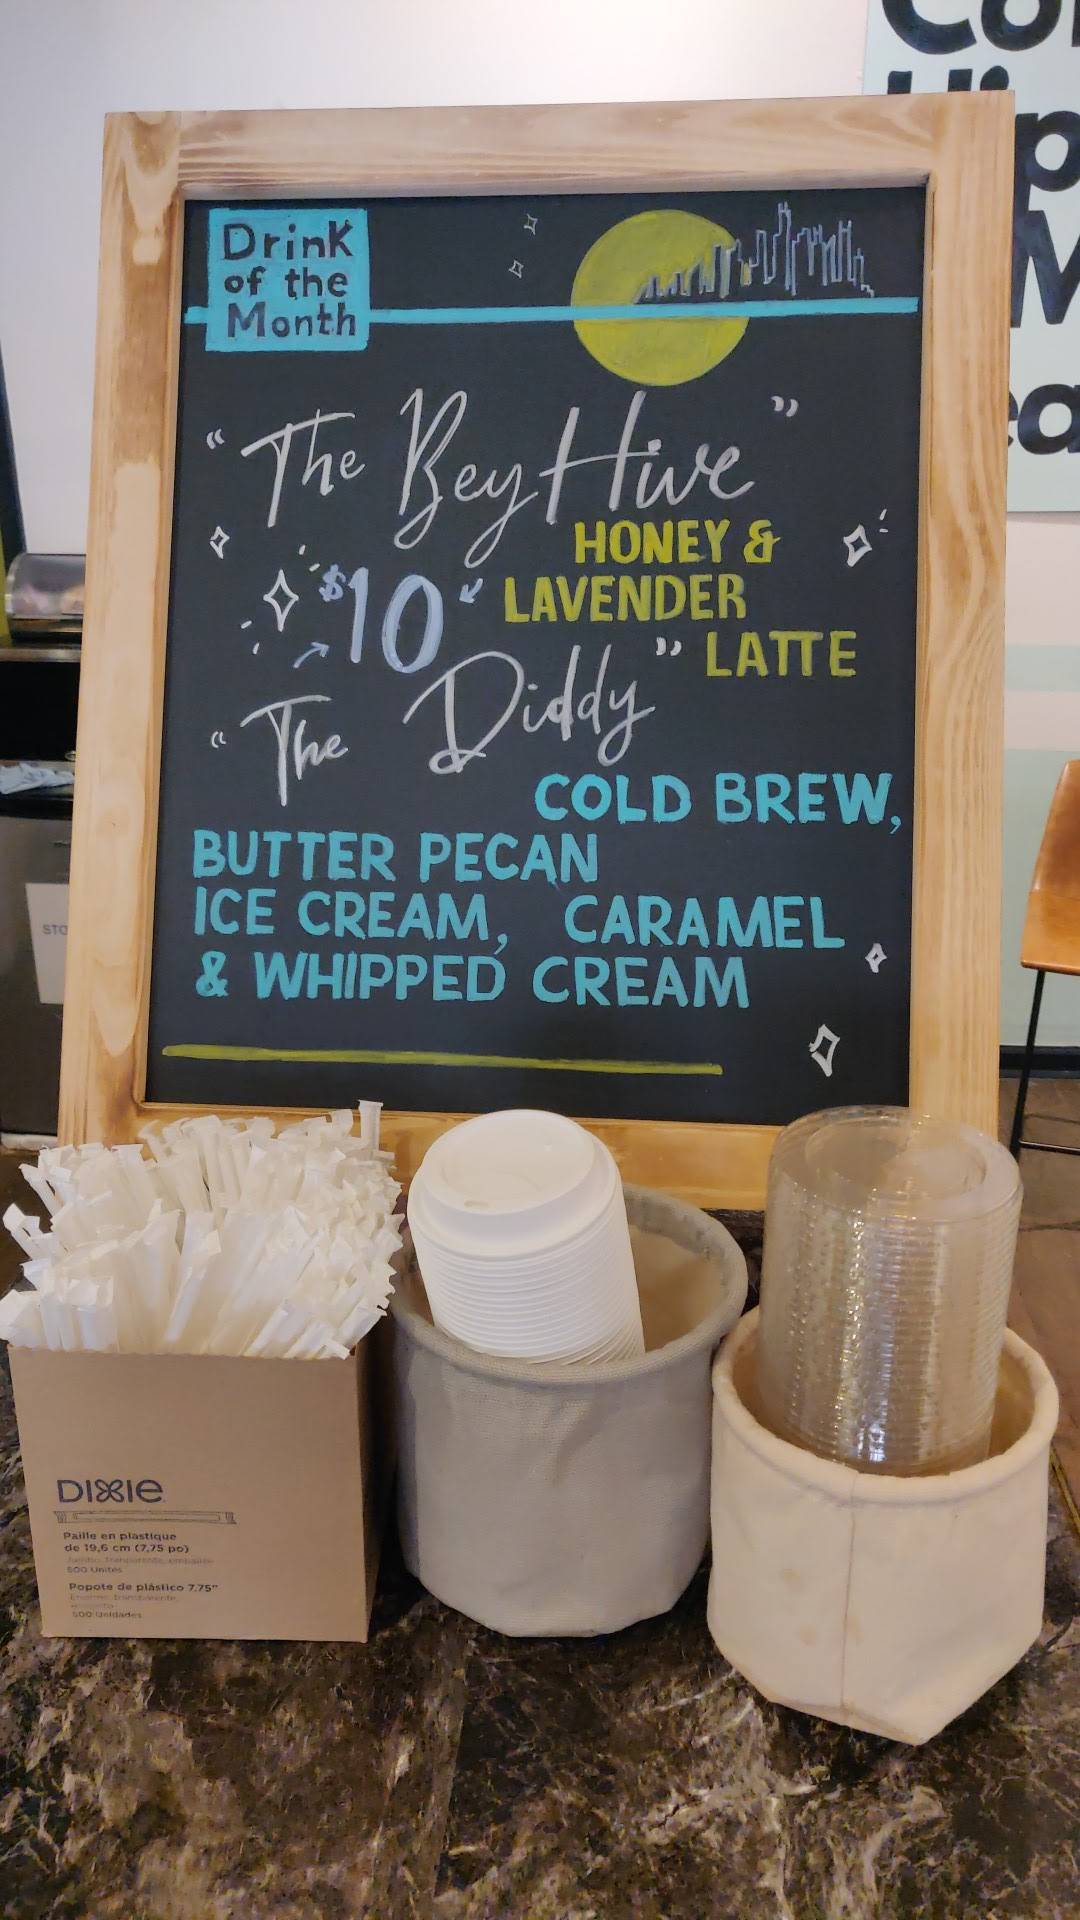 Co
Hip
M
ea
Drink
of the
Month
"The BeyHive"
HONEY &
$10 LAVENDER
LATTE
"The Diddy"
COLD BREW,
BUTTER PECAN
ICE CREAM, CARAMEL
& WHIPPED CREAM
STO
DIXIE
Paille en plastique
de 19,6 cm (7,75 po)
Jumbo, transparente, emballée
500 Unités
Popote de plástico 7.75"
Enorme, transparente,
500 Unidades